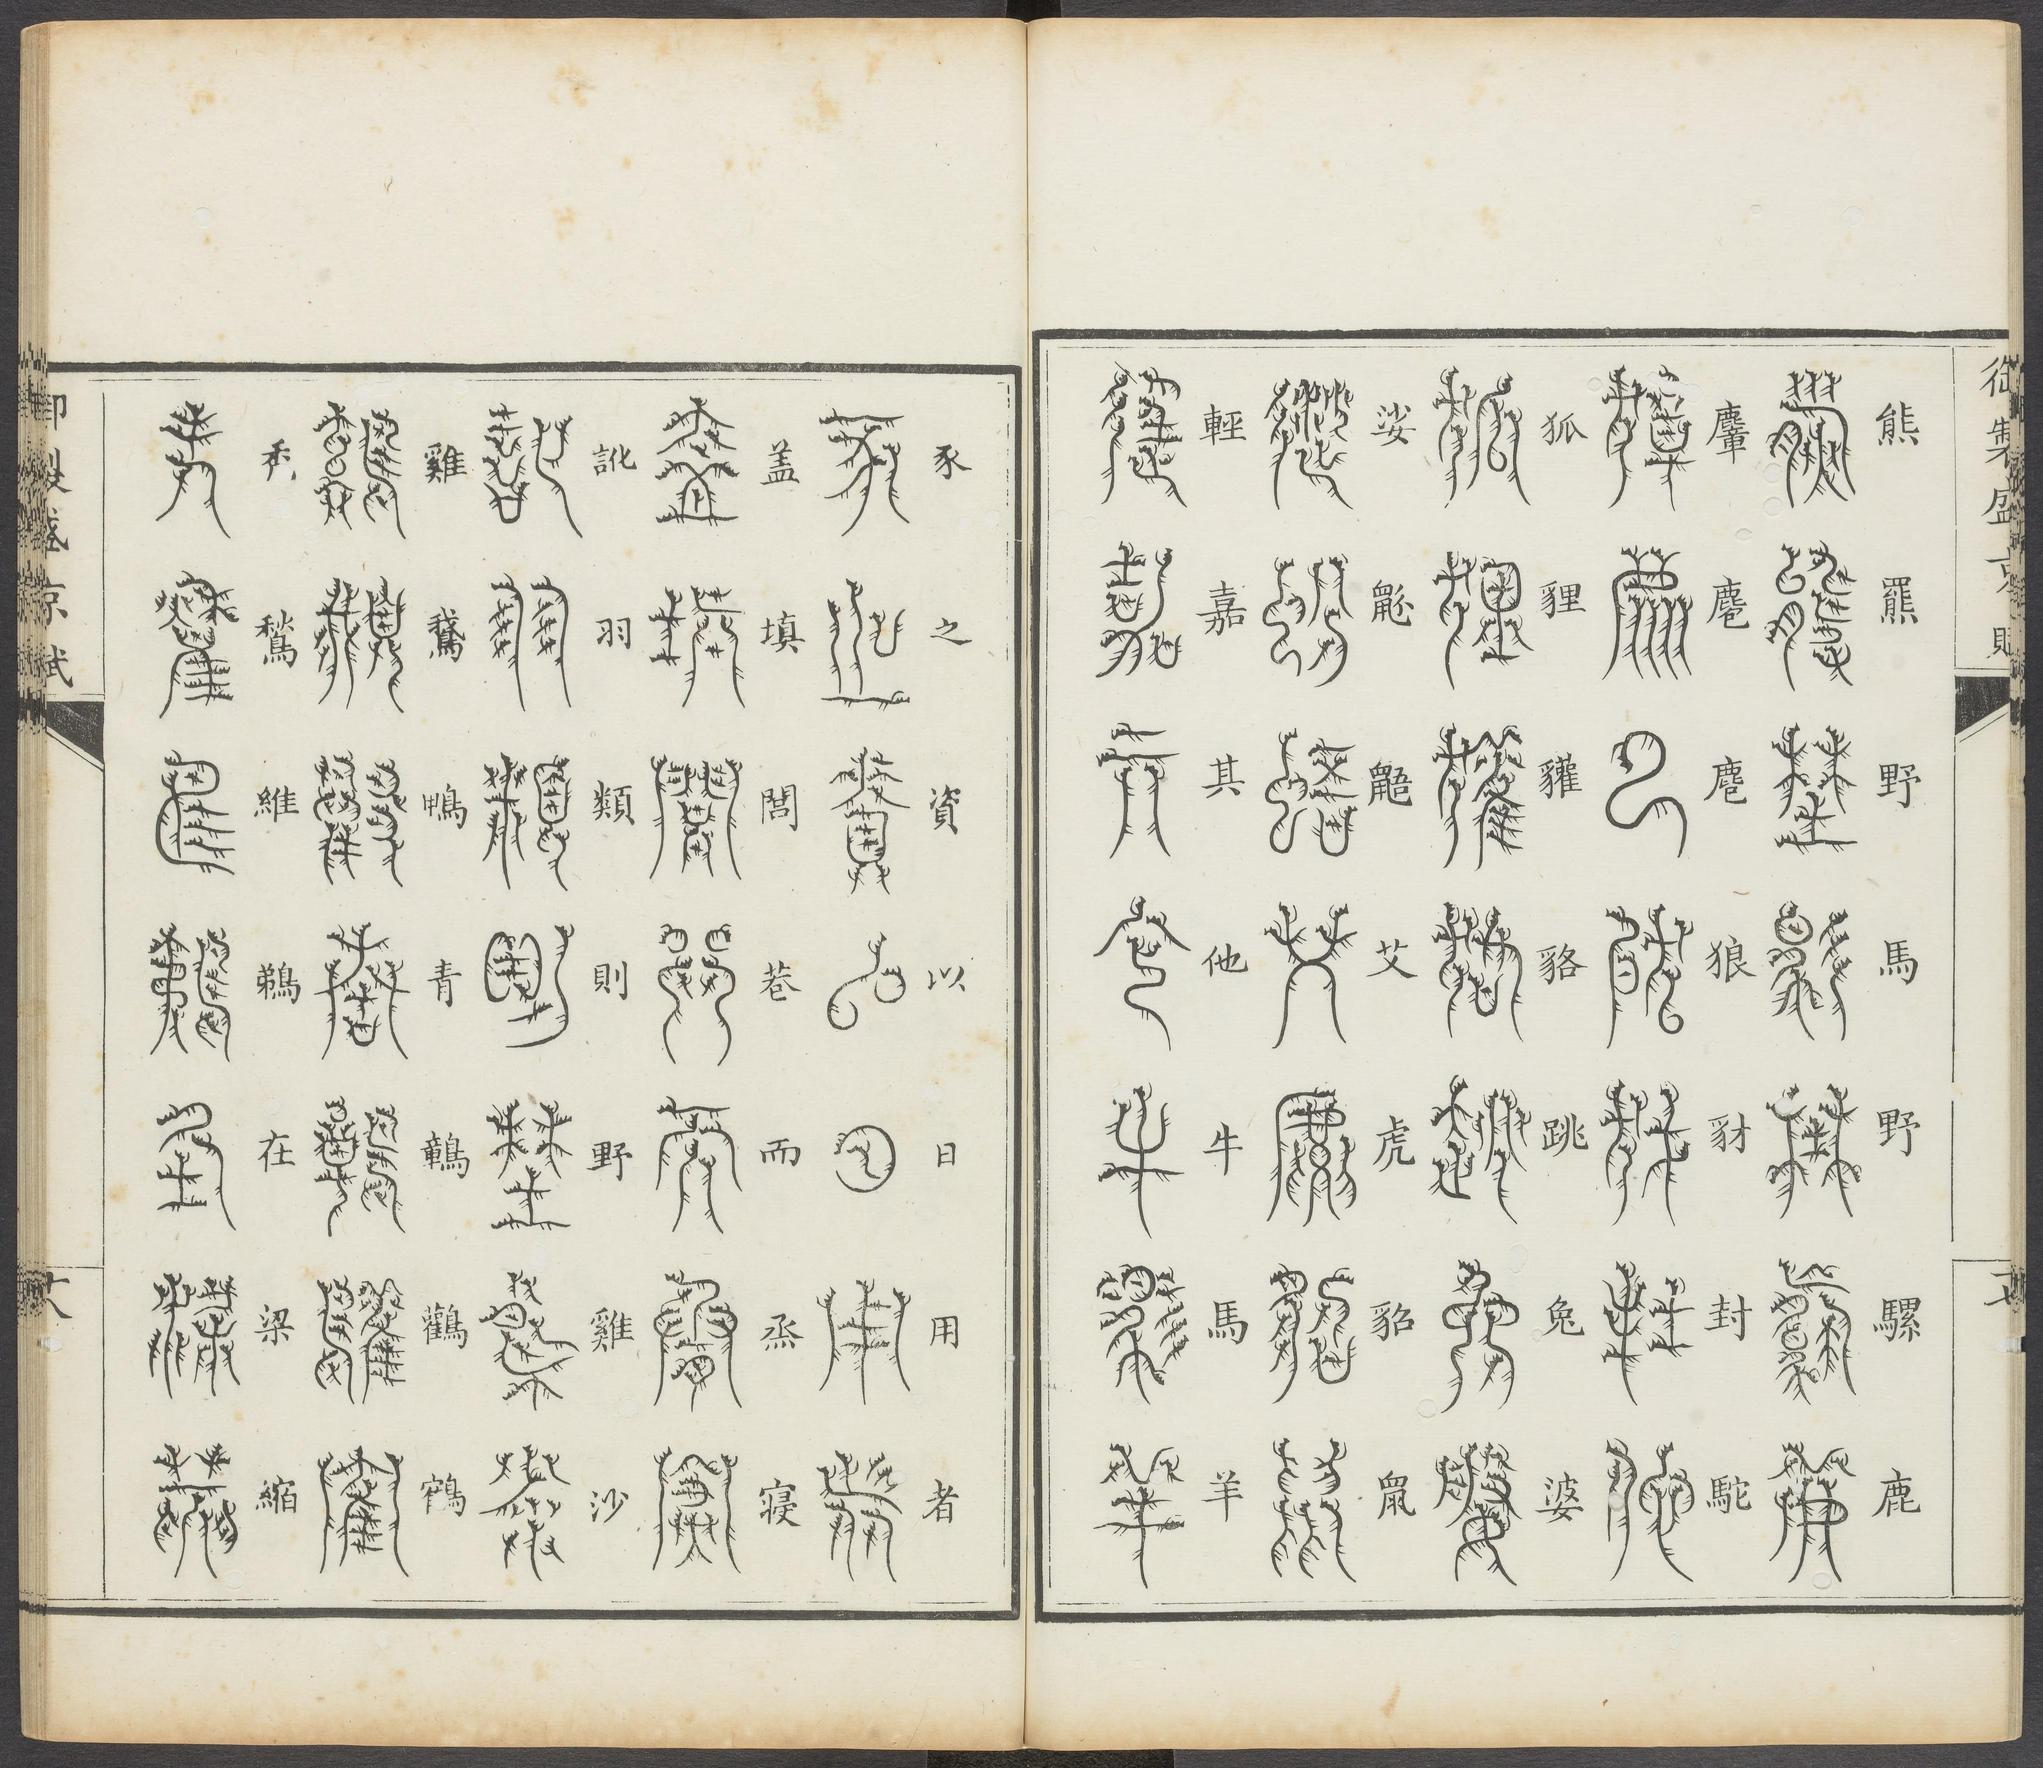 御製盛京賦
熊羆野馬野騾鹿
麅麅狼豺封駝
狐貍貛貉跳兔婆
娑鼢鼯艾虎貂鼠
輕嘉其他牛馬羊
豕之資以日用者
蓋填閭巷而烝寢
訛羽類則野雞沙
雞鵞鴨青鸛鶴
秃鶖維鵜在梁縮
御製盛京賦